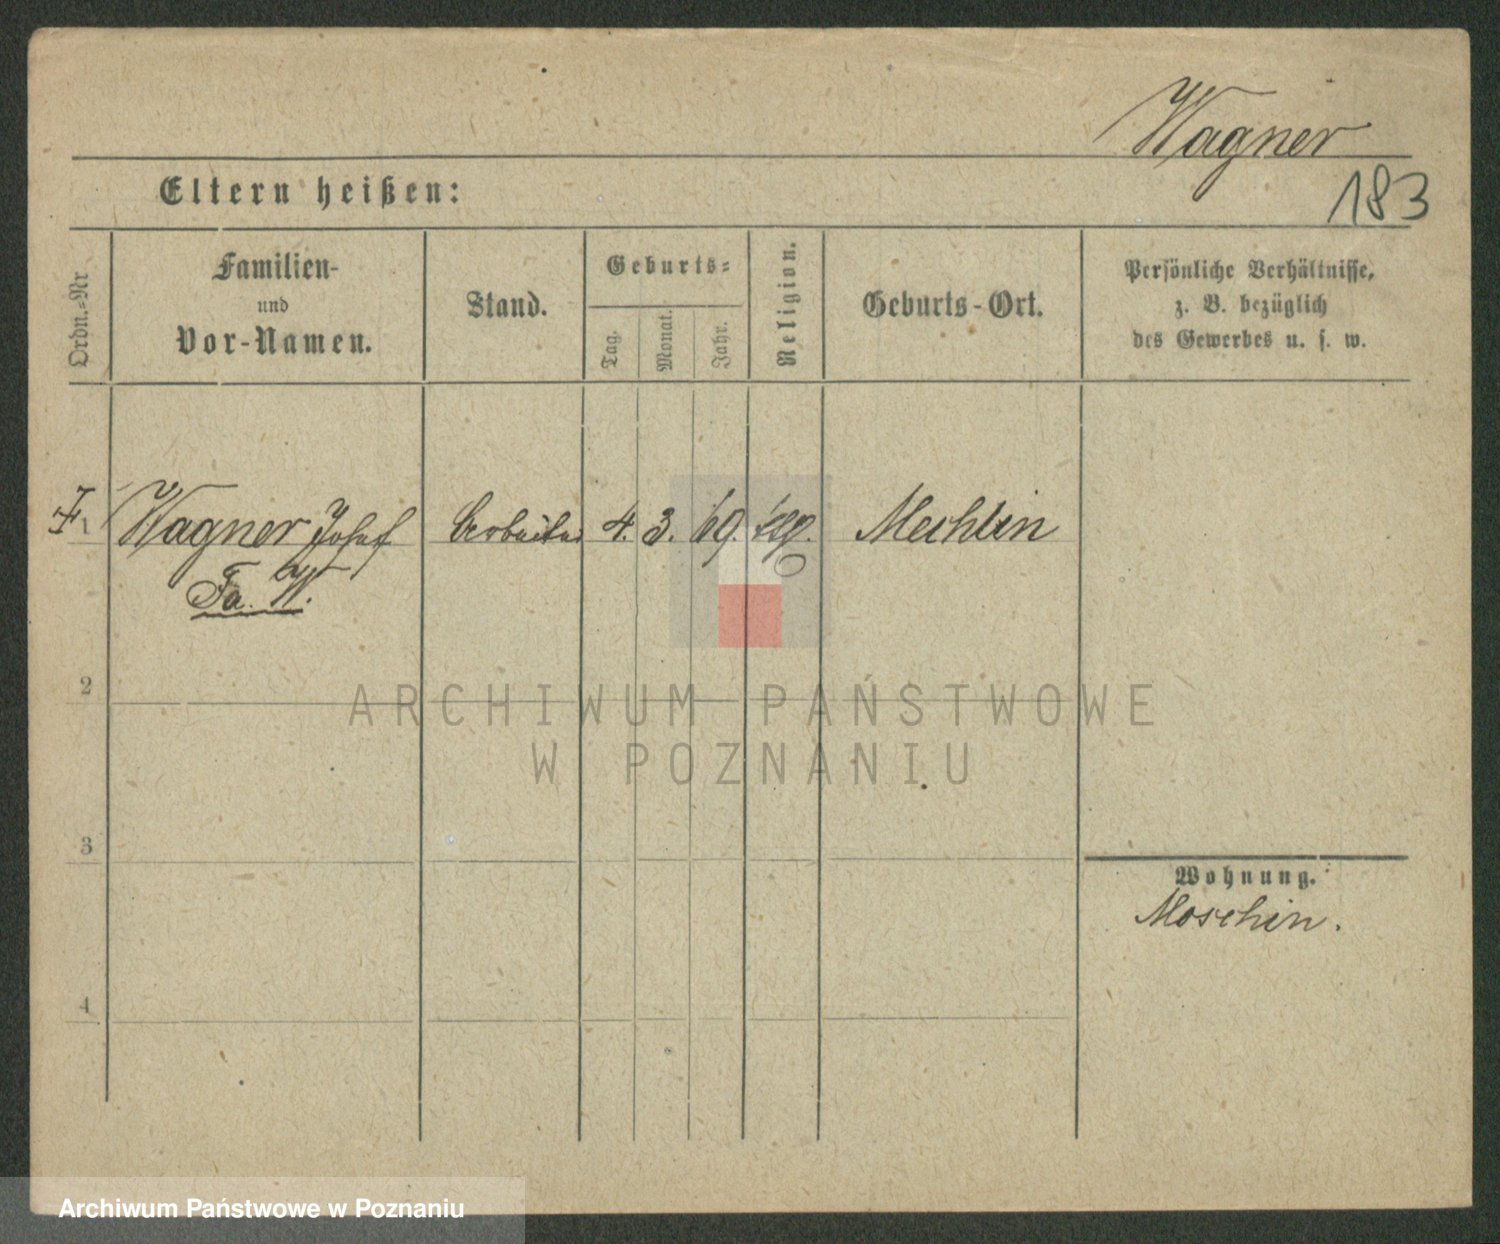 Wagner
183
Eltern heißen:
Ordn.-Nr
Familien-
und
Vor-Namen.
Stand.
Geburts-
Tag.
Monat.
Jahr.
Religion.
Geburts-Ort.
Persönliche Verhältnisse,
z. B. bezüglich
des Gewerbes u. s. w.
1 Wagner Josef Arbeiter 4. 3. 69. Mechlin
Fa. W.
2
ARCHIWUM PAŃSTWOWE
W POZNANIU
3
Wohnung.
Moschin.
4
Archiwum Państwowe w Poznaniu